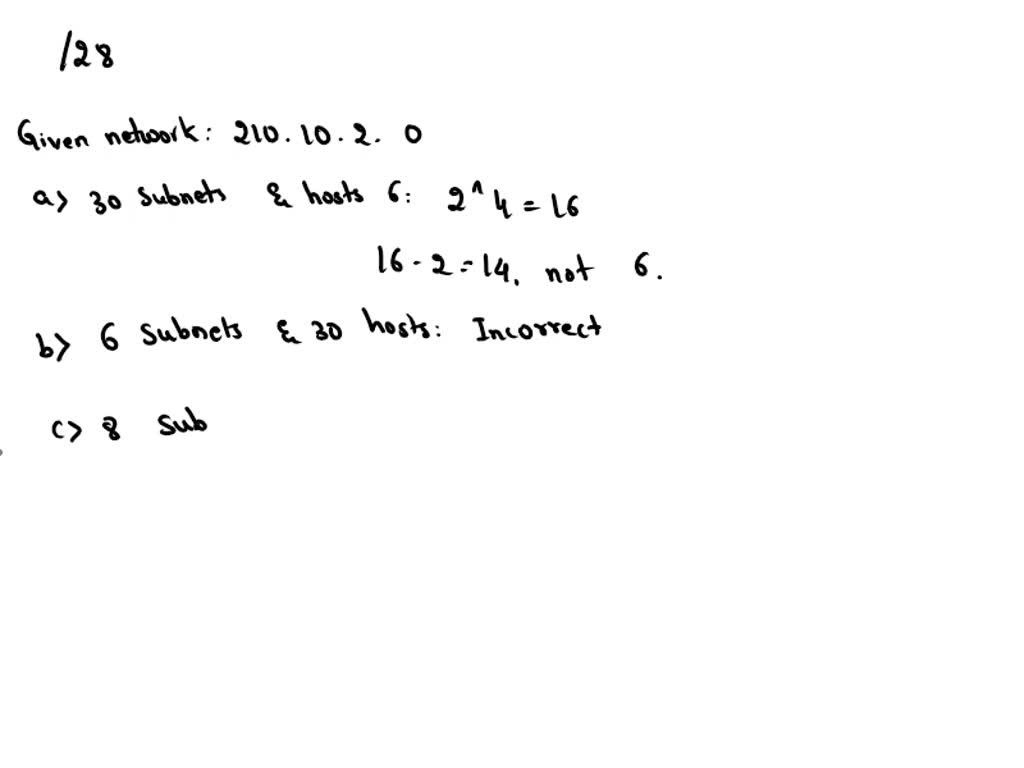 /28
Given network: 210.10.2.0
a> 30 subnets & hosts 6: 2^4=16
16-2=14, not 6.
b> 6 Subnets & 30 hosts: Incorrect
c> 8 Sub